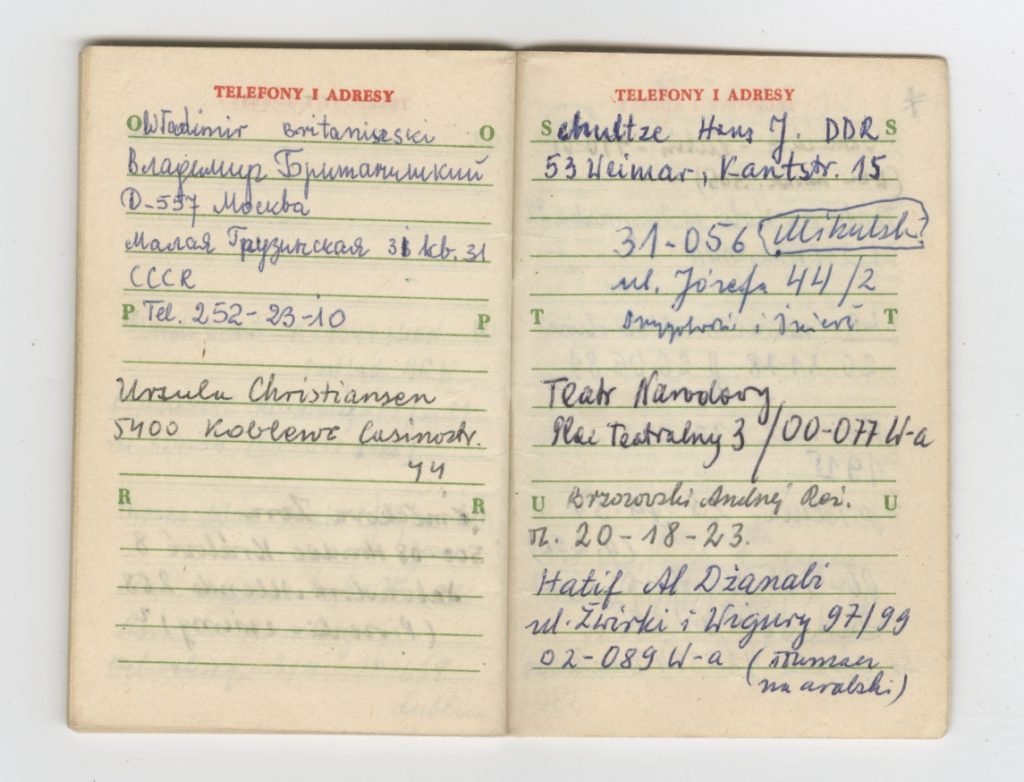 TELEFONY I ADRESY
O Władimir Britaniszski O
Владимир Бритништкий
D-557 Москва
Малая Грузинская 31 kb. 31
CCCR
P Tel. 252-23-10 P
Urszula Christiansen
5400 Koblenz Casinostr.
44
R R
TELEFONY I ADRESY
Schultze Hans J. DDR S
53 Weimar, Kantstr. 15
31-056 Mikulski
ul. Józefa 44/2
T i T
Teatr Narodowy
Plac Teatralny 3/00-077 W-a
U Brzozowski Andrzej Reż. U
tl. 20-18-23.
Hatif Al Dżanabi
ul. Żwirki i Wigury 97/99
02-089 W-a (tłumacz
na arabski)